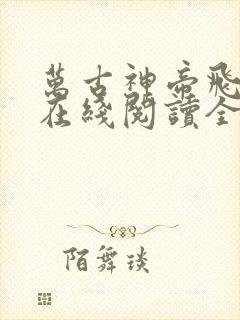 萬古神帝飛
在綫閱讀全
陌舞琰